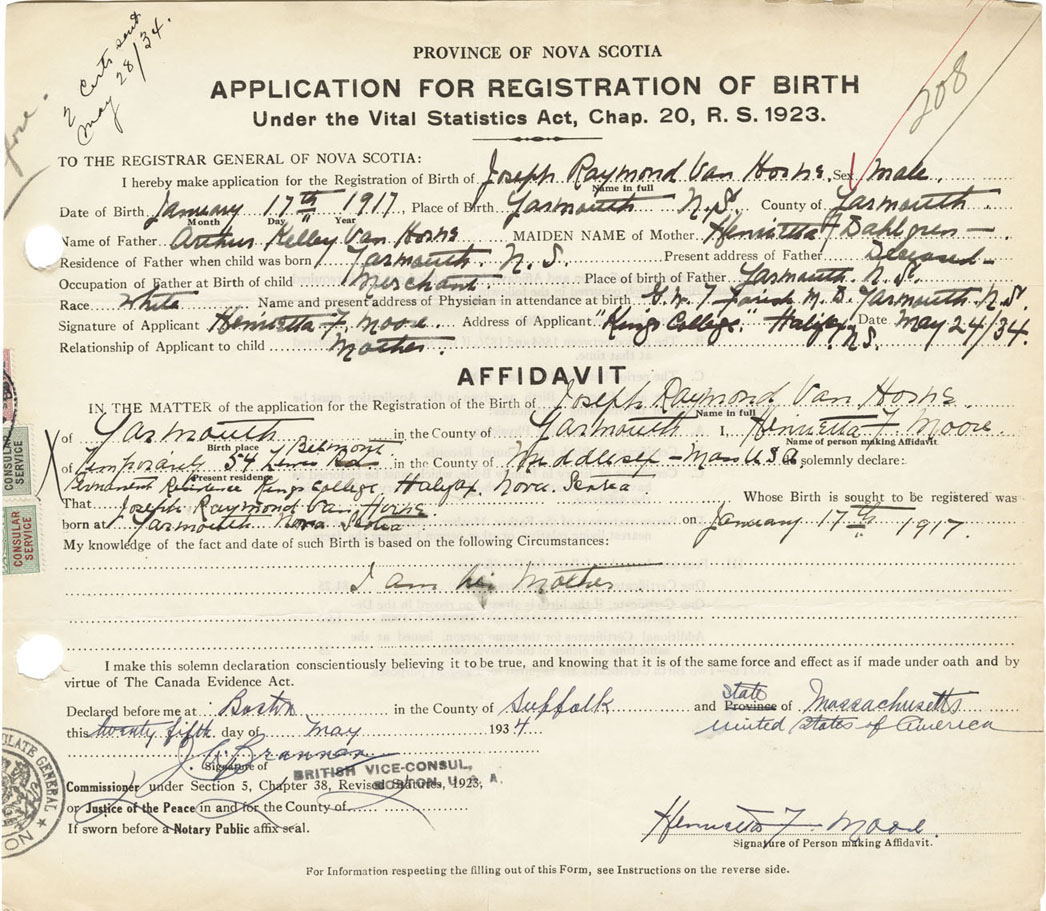 2 Certs sent
May 28/34.
208
PROVINCE OF NOVA SCOTIA
APPLICATION FOR REGISTRATION OF BIRTH
Under the Vital Statistics Act, Chap. 20, R. S. 1923.
TO THE REGISTRAR GENERAL OF NOVA SCOTIA:
I hereby make application for the Registration of Birth of Joseph Raymond Van Horne Sex Male.
Name in full
Date of Birth January 17th 1917, Place of Birth Yarmouth N.S. County of Yarmouth
Month Day Year
Name of Father Arthur Kelley Van Horne MAIDEN NAME of Mother Henrietta F Dahlgren
Residence of Father when child was born Yarmouth. N.S. Present address of Father Deceased
Occupation of Father at Birth of child Merchant Place of birth of Father Yarmouth N.S.
Race White Name and present address of Physician in attendance at birth G.W.T. Farish M.D. Yarmouth N.S.
Signature of Applicant Henrietta F. Moore. Address of Applicant "Kings College" Halifax N.S. Date May 24/34.
Relationship of Applicant to child Mother.
AFFIDAVIT
IN THE MATTER of the application for the Registration of the Birth of Joseph Raymond Van Horne
Name in full
of Yarmouth in the County of Yarmouth I, Henrietta F Moore
Birth place Name of person making Affidavit.
of Temporarily 54 Lewis Rd Belmont in the County of Middlesex - Mass USA solemnly declare:
Present residence
Permanent Residence Kings College, Halifax, Nova Scotia
That Joseph Raymond Van Horne Whose Birth is sought to be registered was
born at Yarmouth Nova Scotia on January 17th 1917.
My knowledge of the fact and date of such Birth is based on the following Circumstances:
I am his Mother
I make this solemn declaration conscientiously believing it to be true, and knowing that it is of the same force and effect as if made under oath and by
virtue of The Canada Evidence Act.
Declared before me at Boston in the County of Suffolk and State Province of Massachusetts
this twenty fifth day of May 1934 United States of America
Brannan
Signature of
BRITISH VICE-CONSUL,
BOSTON, U.S.A.
Commissioner under Section 5, Chapter 38, Revised Statutes, 1923,
or Justice of the Peace in and for the County of
If sworn before a Notary Public affix seal.
Henrietta F. Moore.
Signature of Person making Affidavit.
For Information respecting the filling out of this Form, see Instructions on the reverse side.
CONSULAR
SERVICE
CONSULAR
SERVICE